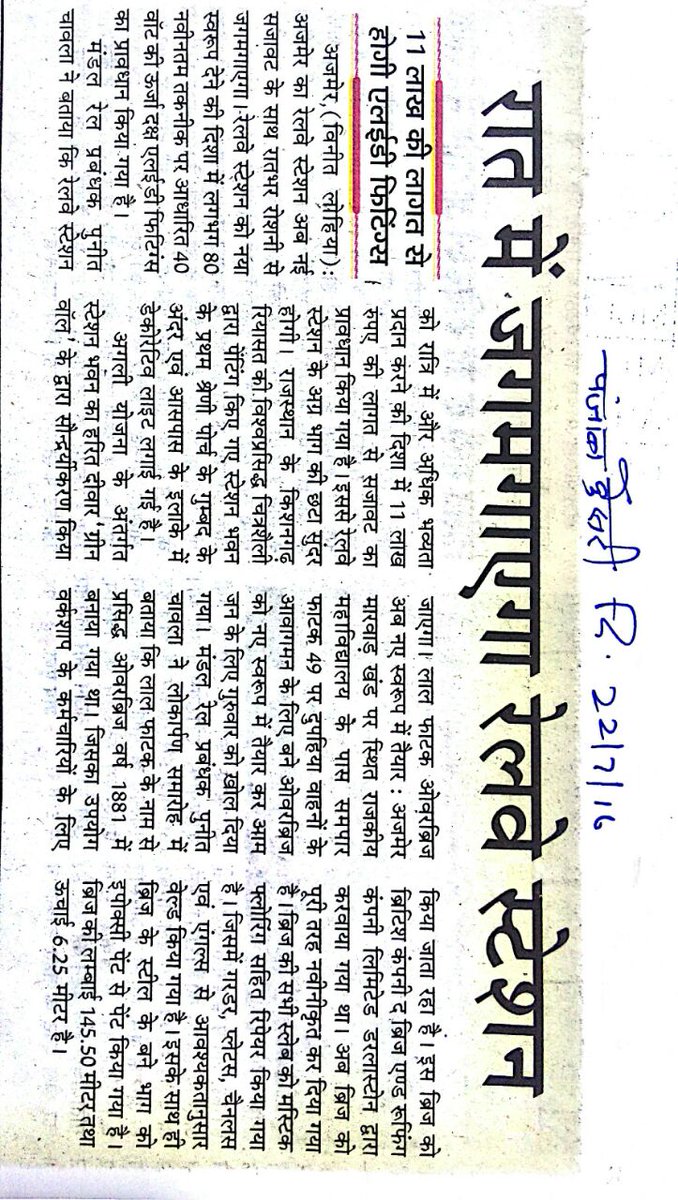 पंजाब केसरी दि. 22/7/16
रात में जगमगाएगा रेलवे स्टेशन
11 लाख की लागत से
होगी एलईडी फिटिंग्स
अजमेर, (विनीत लोहिया):
अजमेर का रेलवे स्टेशन अब नई
सजावट के साथ रातभर रोशनी से
जगमगाएगा। रेलवे स्टेशन को नया
स्वरूप देने की दिशा में लगभग 80
नवीनतम तकनीक पर आधारित 40
वॉट की ऊर्जा दक्ष एलईडी फिटिंग्स
का प्रावधान किया गया है।
मंडल रेल प्रबंधक पुनीत
चावला ने बताया कि रेलवे स्टेशन
को रात्रि में और अधिक भव्यता
प्रदान करने की दिशा में 11 लाख
रुपए की लागत से सजावट का
प्रावधान किया गया है। इससे रेलवे
स्टेशन के अग्र भाग की छटा सुंदर
होगी। राजस्थान के किशनगढ़
रियासत की विश्वप्रसिद्ध चित्रशैली
द्वारा पेंटिंग किए गए स्टेशन भवन
के प्रथम श्रेणी पोर्च के गुम्बद के
अंदर एवं आसपास के इलाके में
डेकोरेटिव लाइट लगाई गई है।
अगली योजना के अंतर्गत
स्टेशन भवन का हरित दीवार 'ग्रीन
वॉल' के द्वारा सौन्द्रयीकरण किया
जाएगा। लाल फाटक ओवरब्रिज
अब नए स्वरूप में तैयार : अजमेर
मारवाड़ खंड पर स्थित राजकीय
महाविद्यालय के पास समपार
फाटक 49 पर दुपहिया वाहनों के
आवागमन के लिए बने ओवरब्रिज
को नए स्वरूप में तैयार कर आम
जन के लिए गुरुवार को खोल दिया
गया। मंडल रेल प्रबंधक पुनीत
चावला ने लोकार्पण समारोह में
बताया कि लाल फाटक के नाम से
प्रसिद्ध ओवरब्रिज वर्ष 1881 में
बनाया गया था। जिसका उपयोग
वर्कशाप के कर्मचारियों के लिए
किया जाता रहा है। इस ब्रिज को
ब्रिटिश कंपनी द ब्रिज एण्ड रूफिंग
कंपनी लिमिटेड डरलास्टोन द्वारा
बनवाया गया था। अब ब्रिज को
पूरी तरह नवीनीकृत कर दिया गया
है। ब्रिज की सभी स्लेब को मस्टिक
फ्लोरिंग सहित रिपेयर किया गया
है। जिसमें गरडर, प्लेटस, चैनलस
एवं एंगल्स से आवश्यकतानुसार
वेल्ड किया गया है। इसके साथ ही
ब्रिज के स्टील के बने भाग को
इपोक्सी पेंट से पेंट किया गया है।
ब्रिज की लम्बाई 145.50 मीटर तथा
ऊंचाई 6.25 मीटर है।